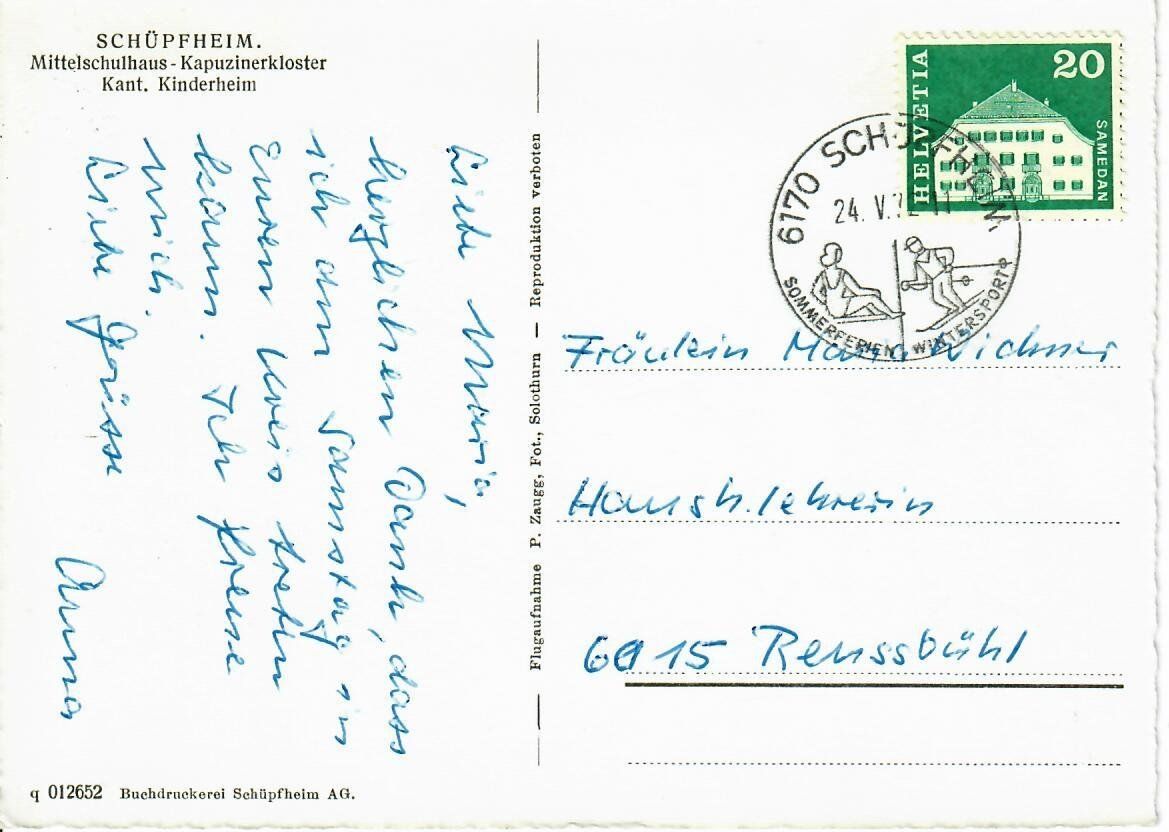 SCHÜPFHEIM.
Mittelschulhaus - Kapuzinerkloster
Kant. Kinderheim
Liebe Maria,
Herzlichen Dank, dass
ich am Samstag in
Euren Kreis treten
kann. Ich freue
mich.
Liebe Grüsse
Anna
q 012652 Buchdruckerei Schüpfheim AG.
Flugaufnahme P. Zaugg, Fot., Solothurn — Reproduktion verboten
HELVETIA
20
SAMEDAN
6170 SCHÜPFHEIM
24. V. 11
SOMMERFERIEN WINTERSPORT
Fräulein Maria Wichner
Haush.lehrerin
6015 Reussbühl